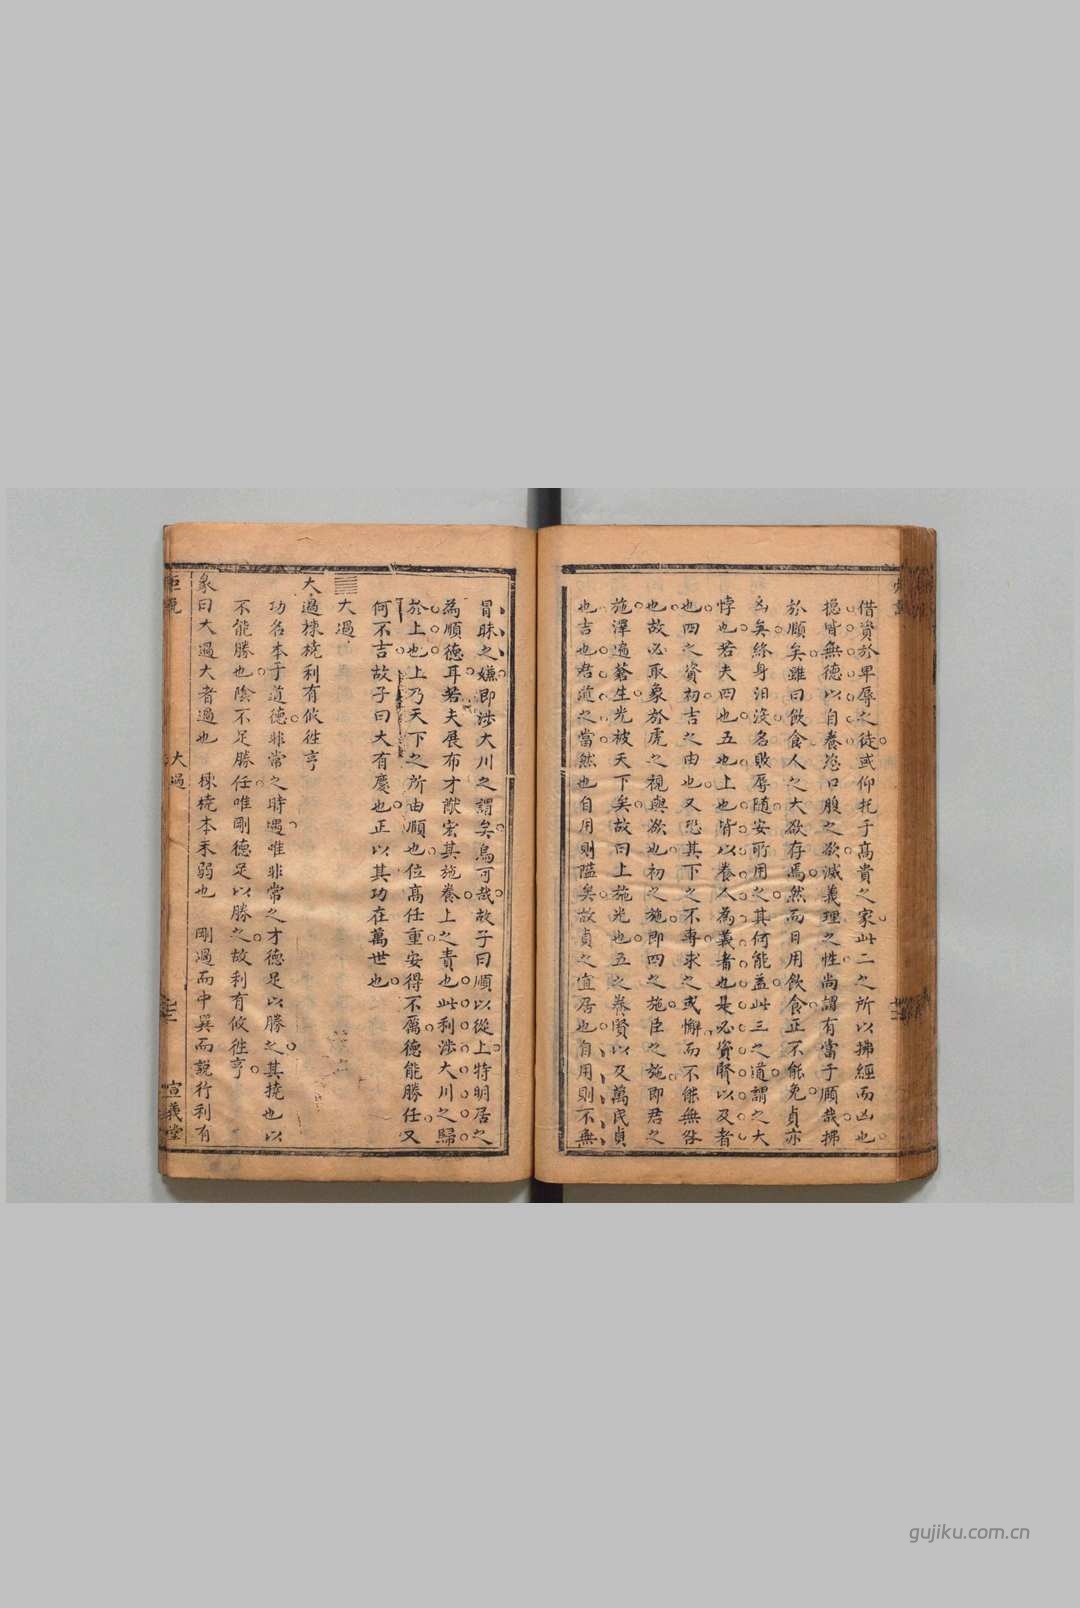 借資於卑辱之徒或仰托于高貴之家此二之所以拂經而凶也
揔皆無德以自養恣口腹之欲滅義理之性尚謂有當于願哉拂
於順矣雖曰飲食人之大欲存焉然而日用飲食正不能免貞亦
凶矣終身汨沒名敗辱隨安所用之其何能益此三之道謂之大
悖也若夫四也五也上也皆以養人為義者也是必資賢以及者
也四之資初吉之由也又恐其下之不專求之或懈而不能無咎
也故必取象於虎之視與欲也初之施即四之施臣之施即君之
施澤遍蒼生光被天下矣故曰上施光也五之養賢以及萬民貞
也吉也君道之當然也自用則隘矣故貞之宜居也自用則不無
冒昧之嫌即涉大川之謂矣烏可哉故子曰順以從上特明居之
為順德耳若夫展布才猷宏其施養上之責也此利涉大川之歸
於上也上乃天下之所由順也位高任重安得不厲德能勝任又
何不吉故子曰大有慶也正以其功在萬世也
大過
大過棟橈利有攸往亨
功名本于道德非常之時過唯非常之才德足以勝之其撓也以
不能勝也陰不足勝任唯剛德足以勝之故利有攸往亨
彖曰大過大者過也 棟橈本末弱也 剛過而中巽而說行利有
大過
宣義堂
gujiku.com.cn